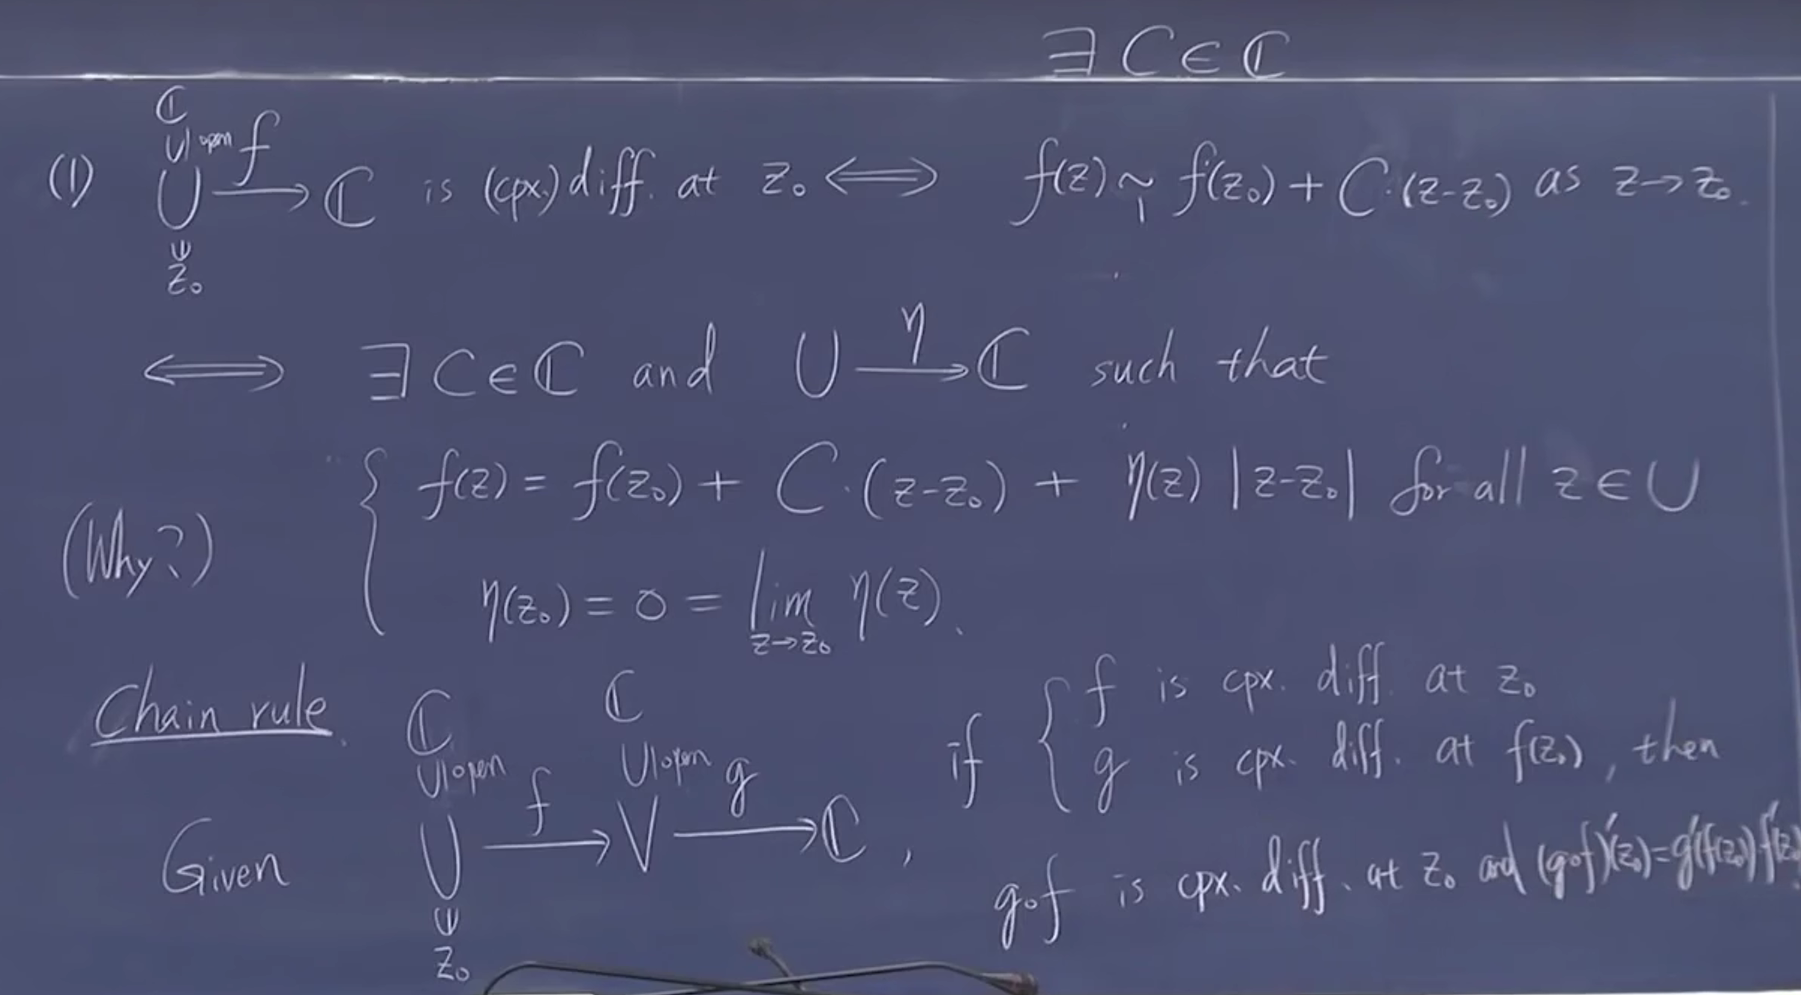 ∃ C ∈ ℂ
ℂ
∪| open
(1) U —f→ ℂ is (cpx.) diff. at z₀ ⟺ f(z) ~₁ f(z₀) + C·(z-z₀) as z→z₀.
∪|
z₀
⟺ ∃ C ∈ ℂ and U —η→ ℂ such that
(Why?) { f(z) = f(z₀) + C·(z-z₀) + η(z) |z-z₀| for all z ∈ U
η(z₀) = 0 = lim_{z→z₀} η(z).
Chain rule.
ℂ ℂ
∪| open ∪| open
Given U —f→ V —g→ ℂ,
∪|
z₀
if { f is cpx. diff. at z₀
g is cpx. diff. at f(z₀), then
g∘f is cpx. diff. at z₀ and (g∘f)'(z₀) = g'(f(z₀)) f'(z₀)